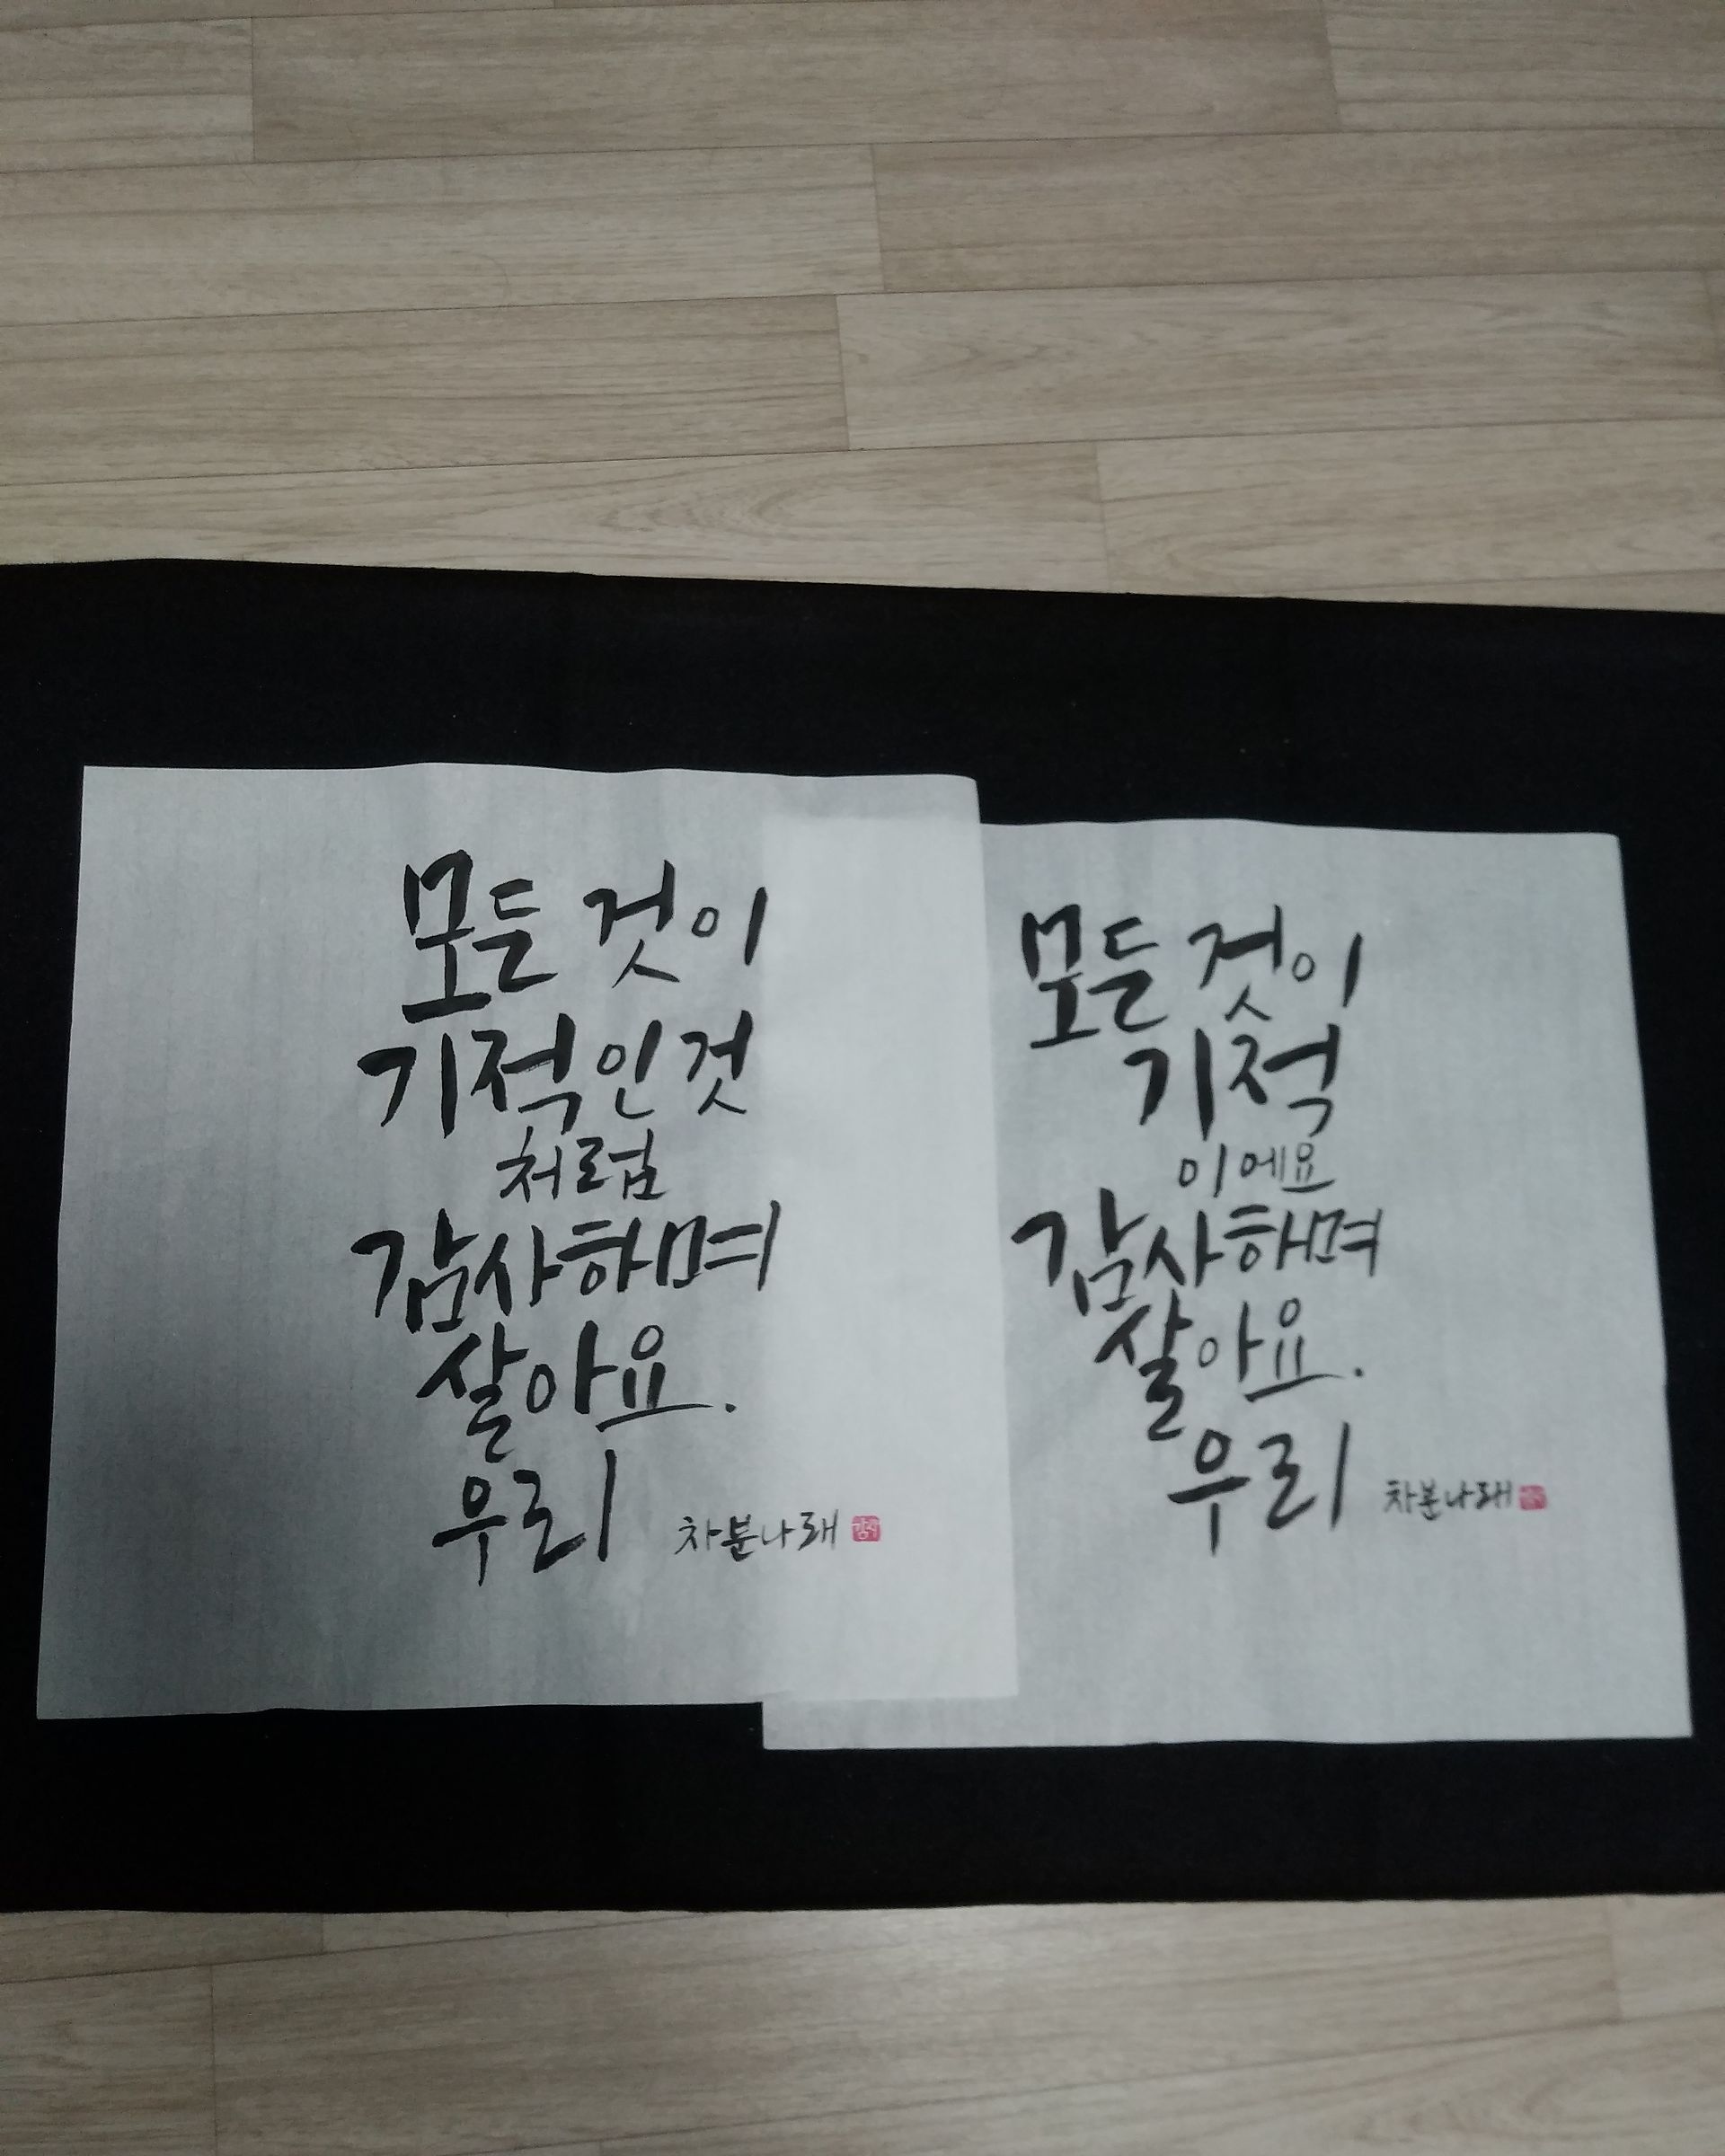 모든 것이
기적인 것
처럼
감사하며
살아요.
우리
차분나래
모든 것이
기적
이에요
감사하며
살아요.
우리
차분나래